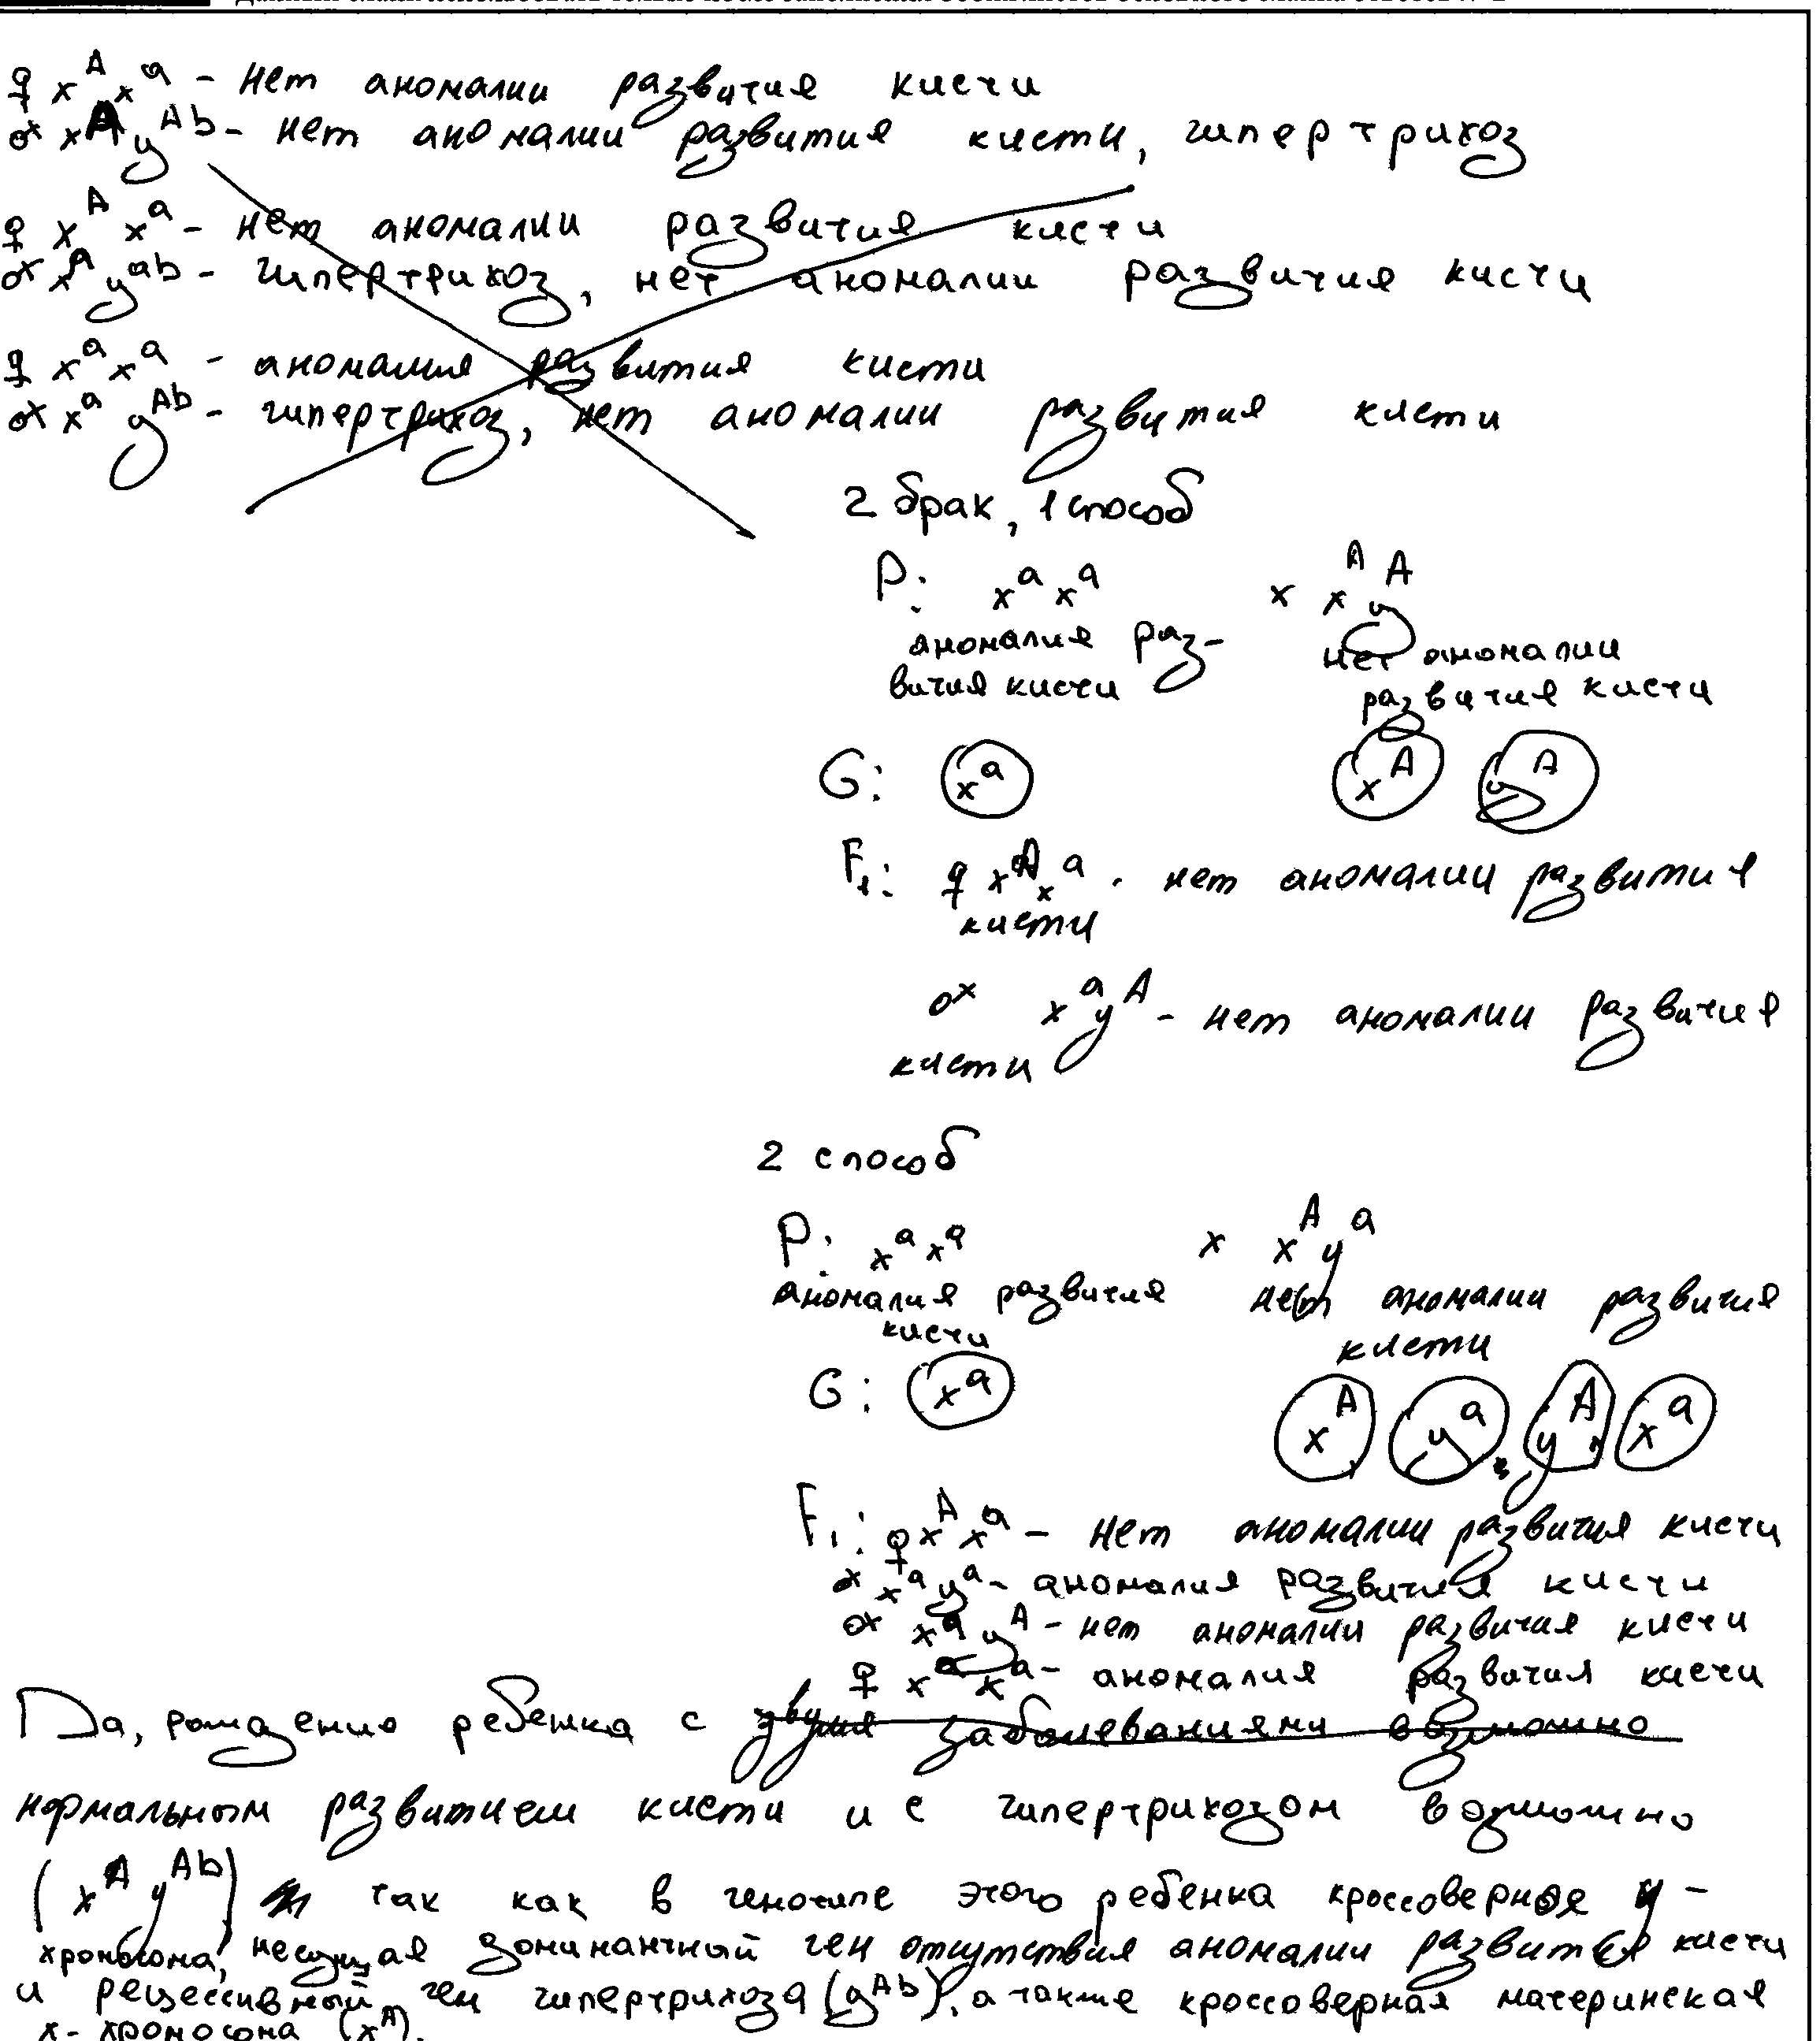 ♀ x^A x^a - нет аномалии развития кисти
♂ x^A y^Ab - нет аномалии развития кисти, гипертрихоз
♀ x^A x^a - нет аномалии развития кисти
♂ x^A y^ab - гипертрихоз, нет аномалии развития кисти
♀ x^a x^a - аномалия развития кисти
♂ x^a y^Ab - гипертрихоз, нет аномалии развития кисти
2 брак, 1 способ
P: x^a x^a × x^A y^A
аномалия раз- нет аномалии
вития кисти развития кисти
G: x^a x^A y^A
F1: ♀ x^A x^a - нет аномалии развития
кисти
♂ x^a y^A - нет аномалии развития
кисти
2 способ
P: x^a x^a × x^A y^a
аномалия развития нет аномалии развития
кисти кисти
G: x^a x^A y^a y^A x^a
F1: ♀ x^A x^a - нет аномалии развития кисти
♂ x^a y^a - аномалия развития кисти
♂ x^a y^A - нет аномалии развития кисти
♀ x^a x^a - аномалия развития кисти
Да, рождению ребенка с двумя заболеваниями возможно
нормальным развитием кисти и с гипертрихозом возможно
(x^A y^Ab) так как в генотипе этого ребенка кроссоверная y-
хромосома, несущая доминантный ген отсутствия аномалии развития кисти
и рецессивный ген гипертрихоза (y^Ab), а также кроссоверная материнская
x-хромосома (x^A).